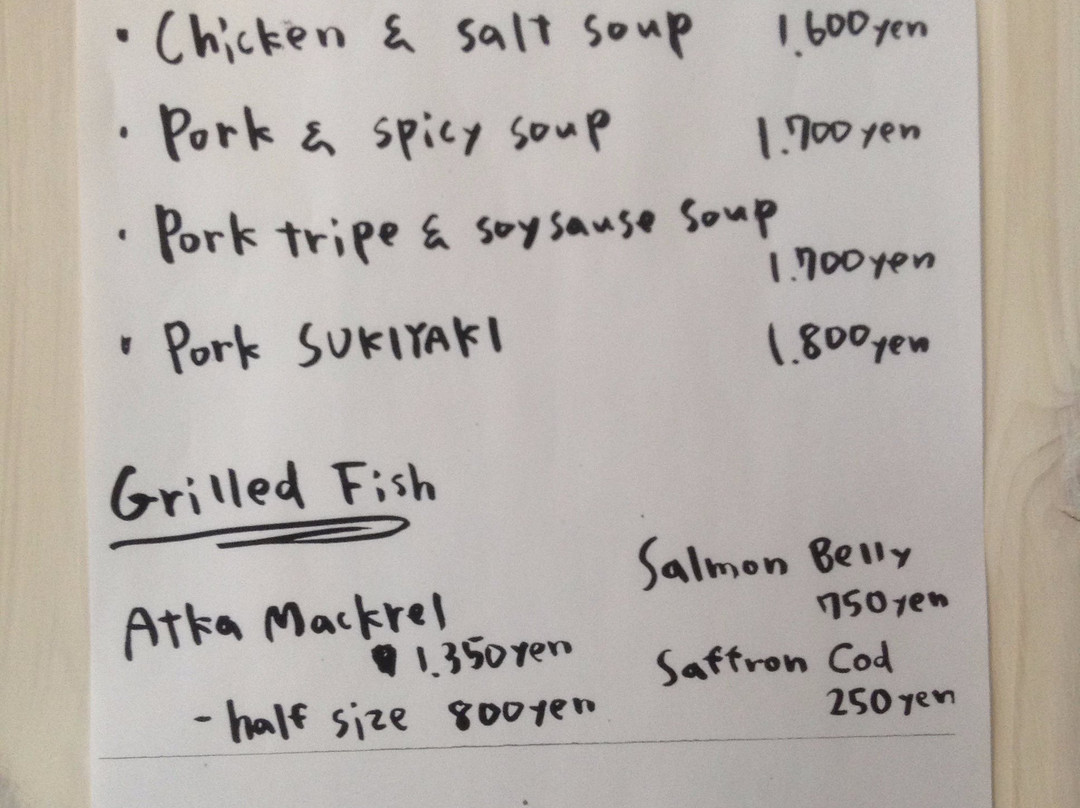 • Chicken & salt soup 1.600yen
• Pork & spicy soup 1.700yen
• Pork tripe & soysause soup
1.700yen
• Pork SUKIYAKI 1.800yen
Grilled Fish
Atka Mackrel
1.350yen
- half size 800yen
Salmon Belly
750yen
Saffron Cod
250yen